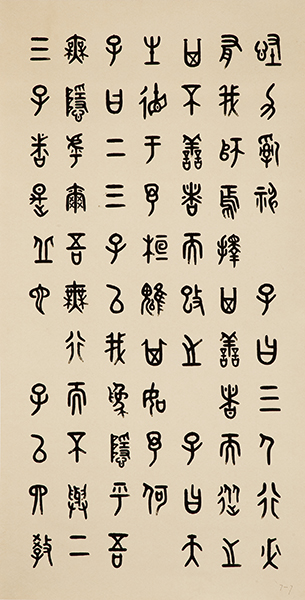 怪力亂神　子曰三人行必
有我師焉擇其善者而從之
其不善者而改之　子曰天
生德于予桓魋其如予何
子曰二三子以我爲隱乎吾
無隱乎爾吾無行而不與二
三子者是丘也　子以四教